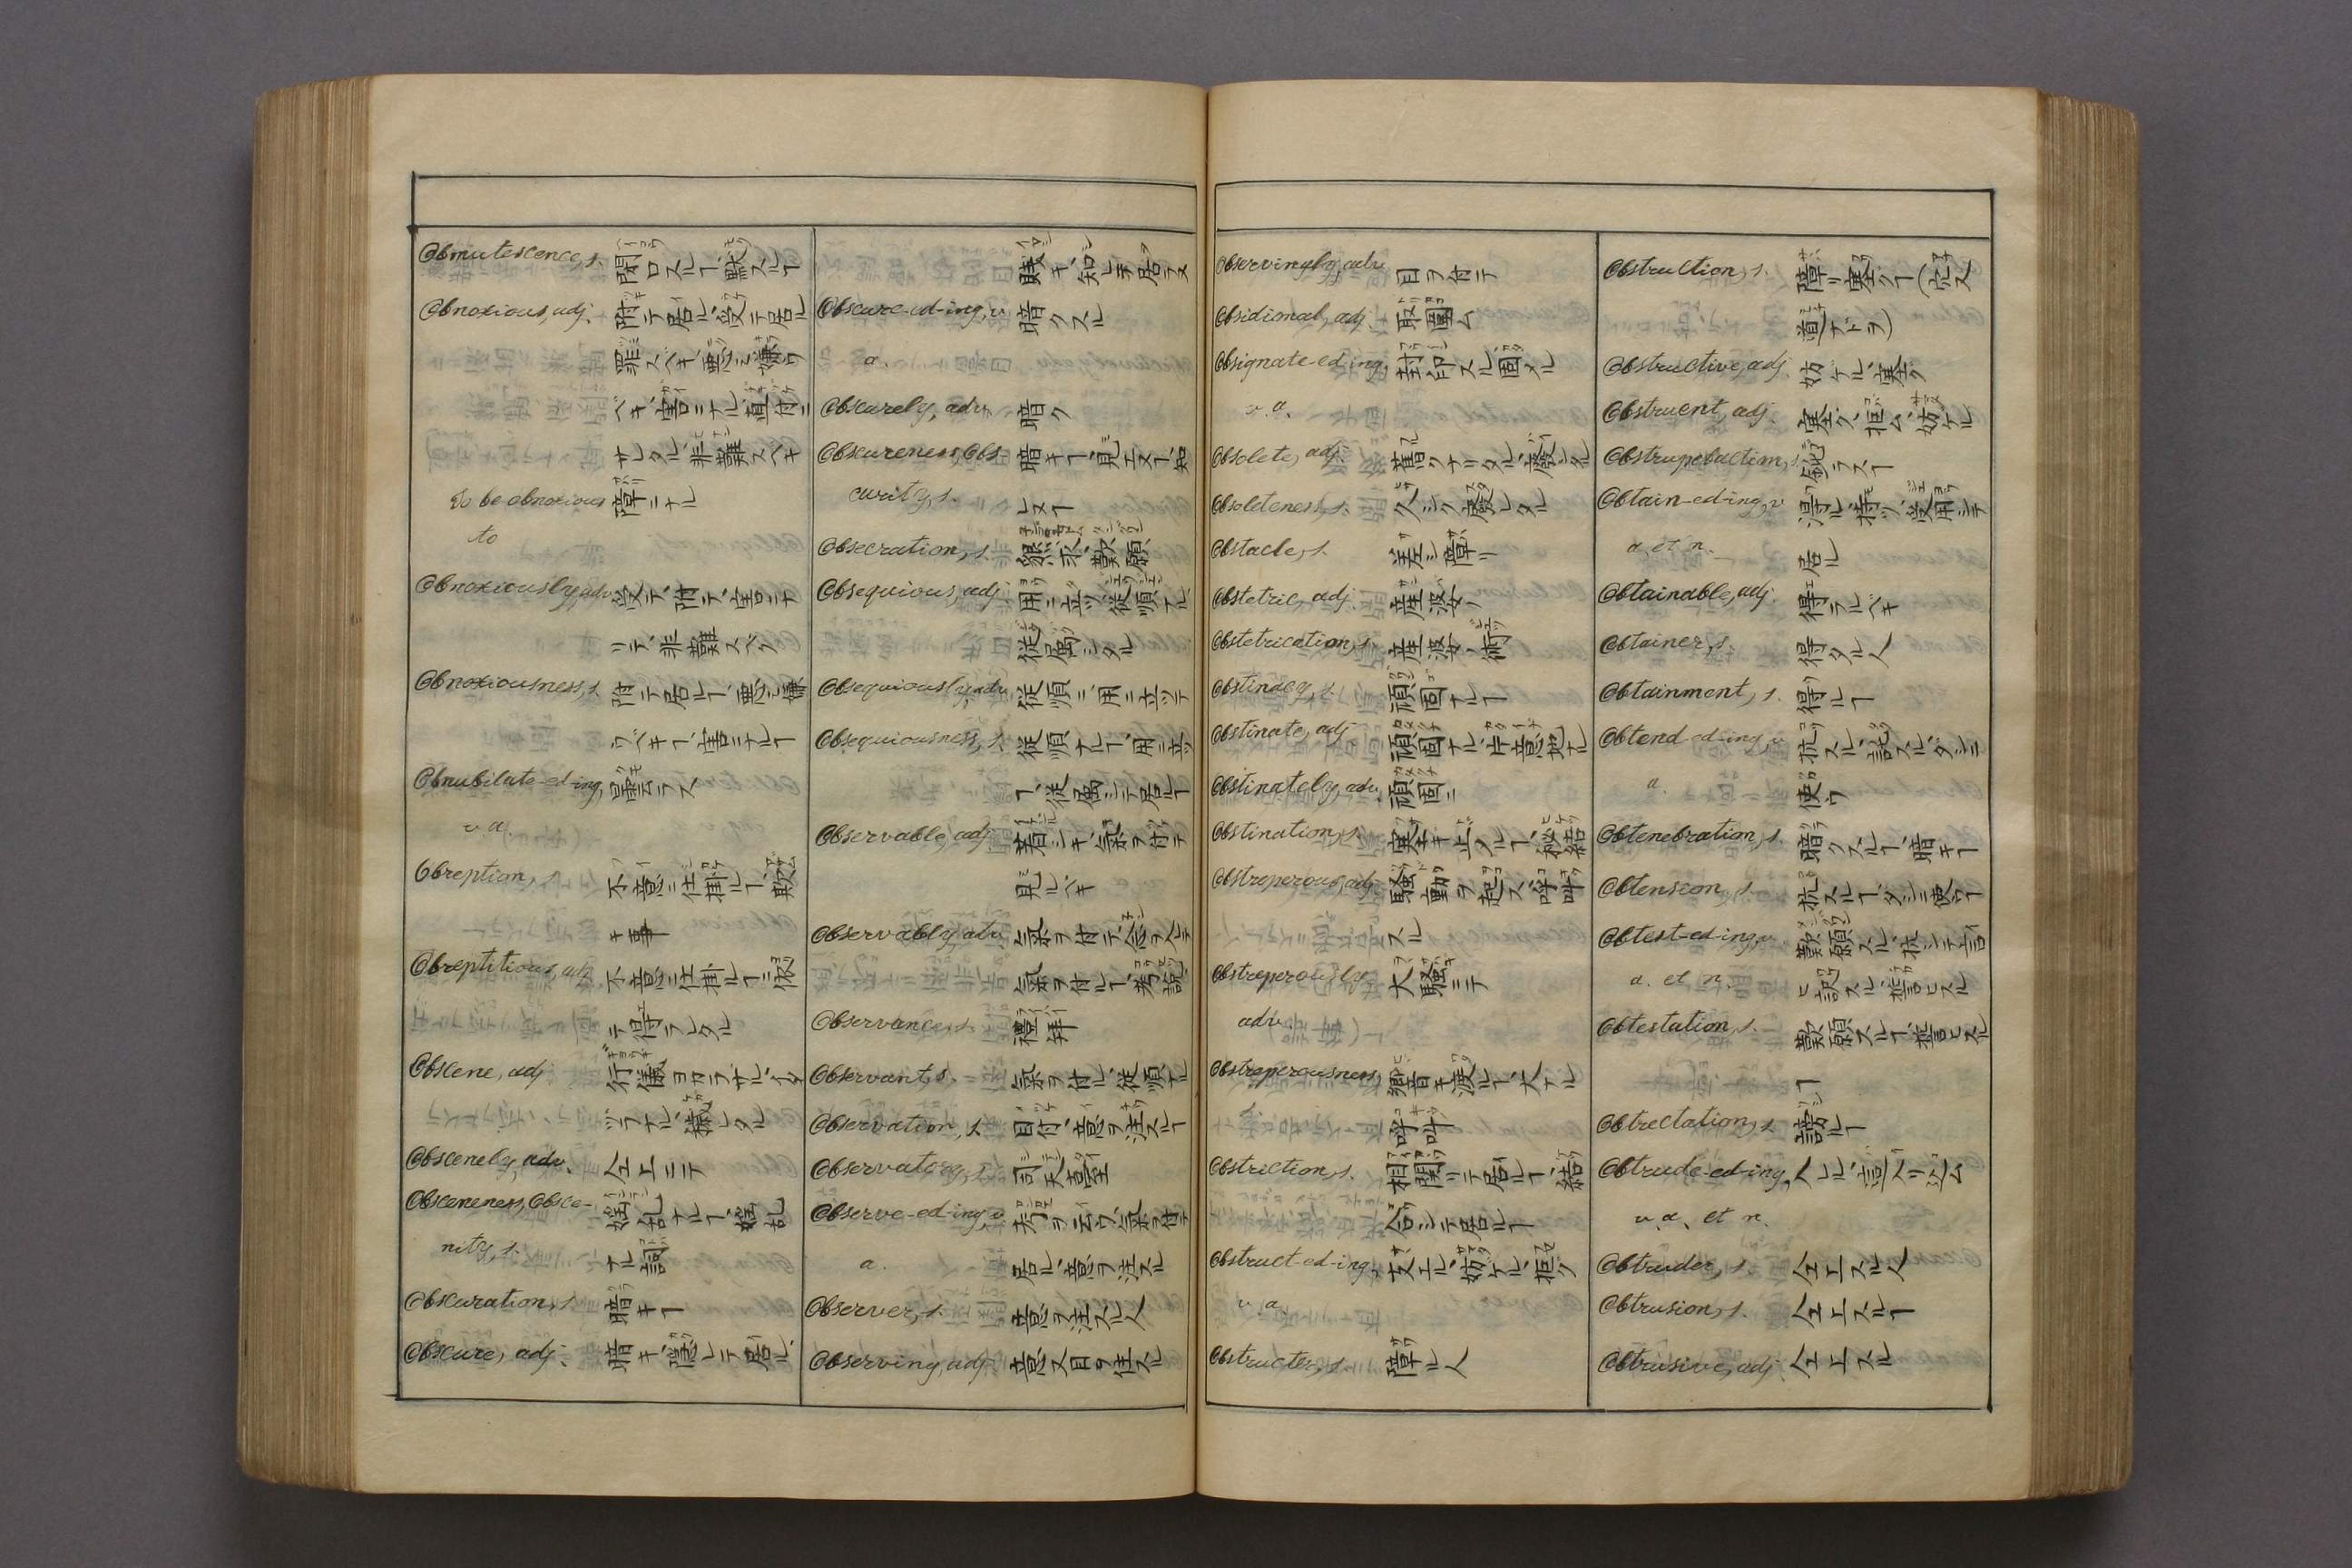 Obmutescence, s. 閉口スルヿ、黙スルヿ
Obnoxious, adj. 附テ居ル、受テ居ル
罪スベキ、悪ミ嫌ウ
ベキ、害ニナル、直付ニ
サレタル、非難スベキ
To be obnoxious 障ニナル
to
Obnoxiously, adv. 受テ、附テ、害ニナ
リテ、非難スベク
Obnoxiousness, s. 附テ居ルヿ、悪ミ嫌
ウベキヿ、害ニナルヿ
Obnubilate-ed-ing, 曇ラス
v. a.
Obreption, s. 不意ニ仕掛ルヿ、欺
キ事
Obreptitious, adj. 不意ニ仕掛ルヿニ依
テ得ラレタル
Obscene, adj. 行儀ヨカラザル、イタ
ヅラナル、穢レタル
Obscenely, adv. 仝上ニテ
Obsceneness, Obsce- 婬乱ナルヿ、婬乱
nity, s. ナル詞
Obscuration, s. 暗キヿ
Obscure, adj. 暗キ、隠レテ居ル、
賤キ、知レテ居ラヌ
Obscure-ed-ing, v. 暗クスル
a.
Obscurely, adv. 暗ク
Obscureness, Obs- 暗キヿ、見エヌヿ、知
curity, s. レヌヿ
Obsecration, s. 懇求、歎願
Obsequious, adj. 用ニ立ツ、従順ナル
従属シタル
Obsequiously, adv. 従順ニ、用ニ立ツテ
Obsequiousness, s. 従順ナルヿ、用ニ立ツ
ヿ、従属シテ居ルヿ
Observable, adj. 著シキ、氣ヲ付テ
見ルベキ
Observably, adv. 氣ヲ付テ、念ヲ入テ
氣ヲ付ルヿ、考説
Observance, s. 禮拜
Observant, s. 氣ヲ付ル、従順ナル
Observation, s. 目付、意ヲ注スルヿ
Observatory, s. 司天臺
Observe-ed-ing, v. ヲ云ウ、氣ヲ付テ
a. 居ル、意ヲ注スル
Observer, s. 意ヲ注スル人
Observing, adj. 意又目ヲ注スル
Observingly, adv. 目ヲ付テ
Obsidional, adj. 取圍ム
Obsignate-ed-ing, 封印スル、固メル
v. a.
Obsolete, adj. 舊クナリタル、廢シタル
Obsoleteness, s. 久シク廢レタル
Obstacle, s. 差シ障リ
Obstetric, adj. 産婆ノ
Obstetrication, s. 産婆ノ術
Obstinacy, s. 頑固ナルヿ
Obstinate, adj. 頑固ナル、片意地ナル
Obstinately, adv. 頑固ニ
Obstination, s. 塞キ止タルヿ、秘結
Obstreperous, adj. 騒動ヲ起ス、呼叫
スル
Obstreperously, 大騒ニテ
adv.
Obstreperousness, 響キ渡ルヿ、大ナル
s. 呼叫
Obstriction, s. 相關リテ居ルヿ、結
合シテ居ルヿ
Obstruct-ed-ing, 支エル、妨ケル、拒ク
v. a.
Obstructer, s. 障ル人
Obstruction, s. 障リ、塞クヿ(穴又
道ナドヲ)
Obstructive, adj. 妨ケル、塞ク
Obstruent, adj. 塞ク、拒ム、妨ケル
Obstupefaction, s. 鈍ラスヿ
Obtain-ed-ing, v. 得ル、持ツ、受用シテ
a. et n. 居ル
Obtainable, adj. 得ラルベキ
Obtainer, s. 得タル人
Obtainment, s. 得ルヿ
Obtend-ed-ing, v. 抗スル、託スル、ダシニ
a. 使ウ
Obtenebration, s. 暗クスルヿ、暗キヿ
Obtension, s. 抗スルヿ、ダシニ使ウヿ
Obtest-ed-ing, v. 歎願スル、抗シテ言
a. et n. ヒ訳スル、誓ヒスル
Obtestation, s. 歎願スルヿ、誓ヒスル
ヿ
Obtrectation, s. 謗ルヿ
Obtrude-ed-ing, 入ルル、這入リ込ム
v. a. et n.
Obtruder, s. 仝上スル人
Obtrusion, s. 仝上スルヿ
Obtrusive, adj. 仝上スル